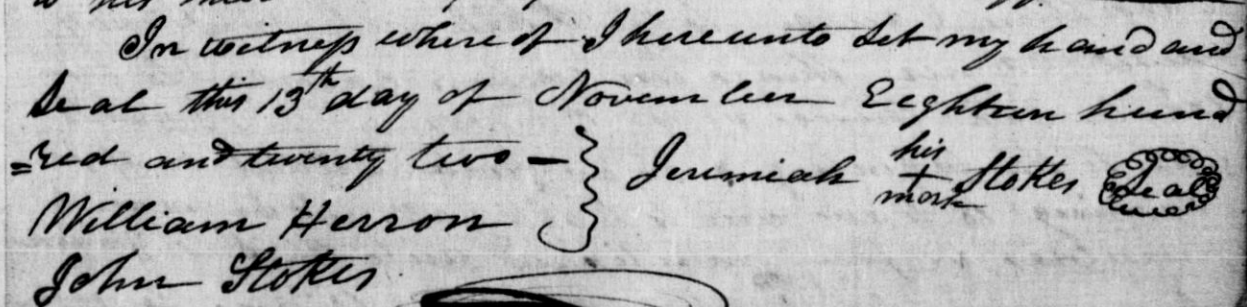 In witness where of I hereunto Set my hand and
Seal this 13th day of November Eighteen hund
=red and twenty two —
Jeremiah his + mark Stokes Seal
William Herron
John Stokes